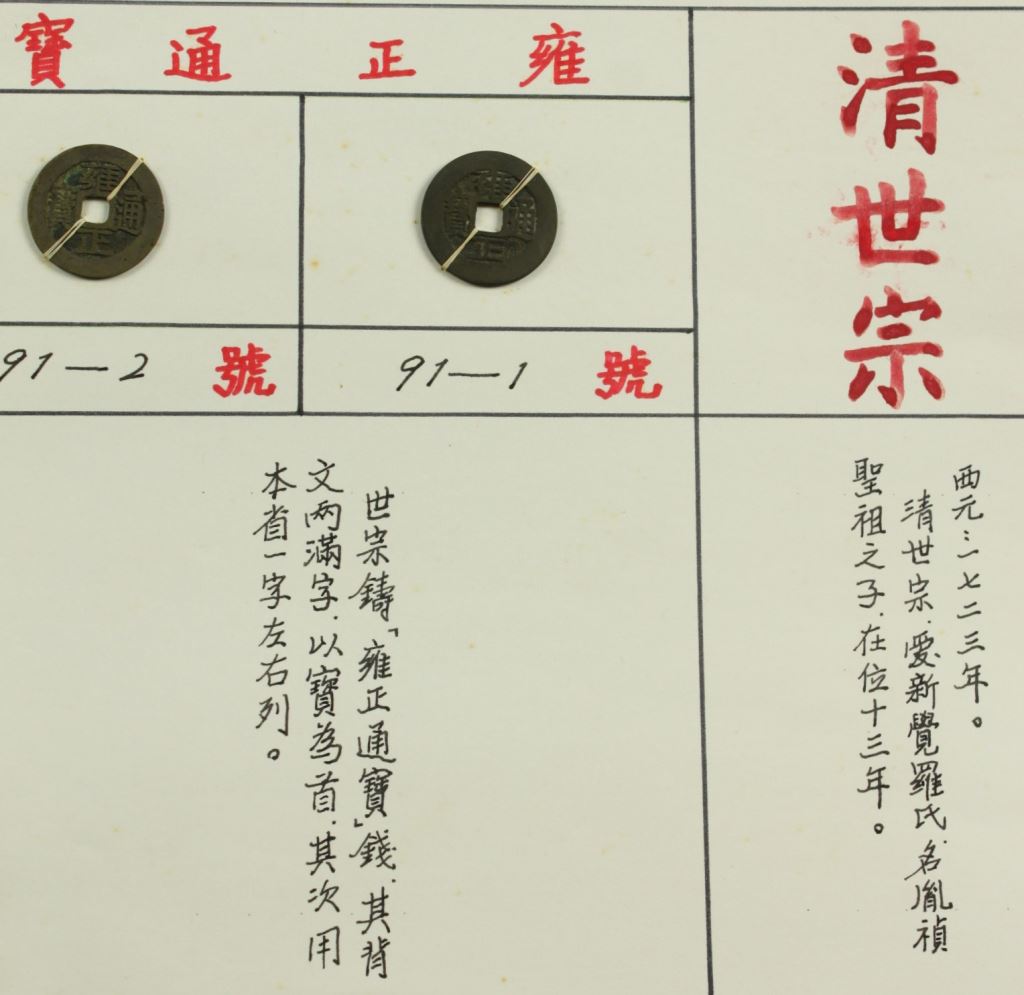 清世宗
西元:一七二三年。
清世宗.愛新覺羅氏.名胤禎
聖祖之子.在位十三年。
雍正通寶
雍正通寶
號 91—1
雍正通寶
號 91—2
世宗鑄「雍正通寶」錢.其背
文两滿字.以寶為首.其次用
本省一字左右列。